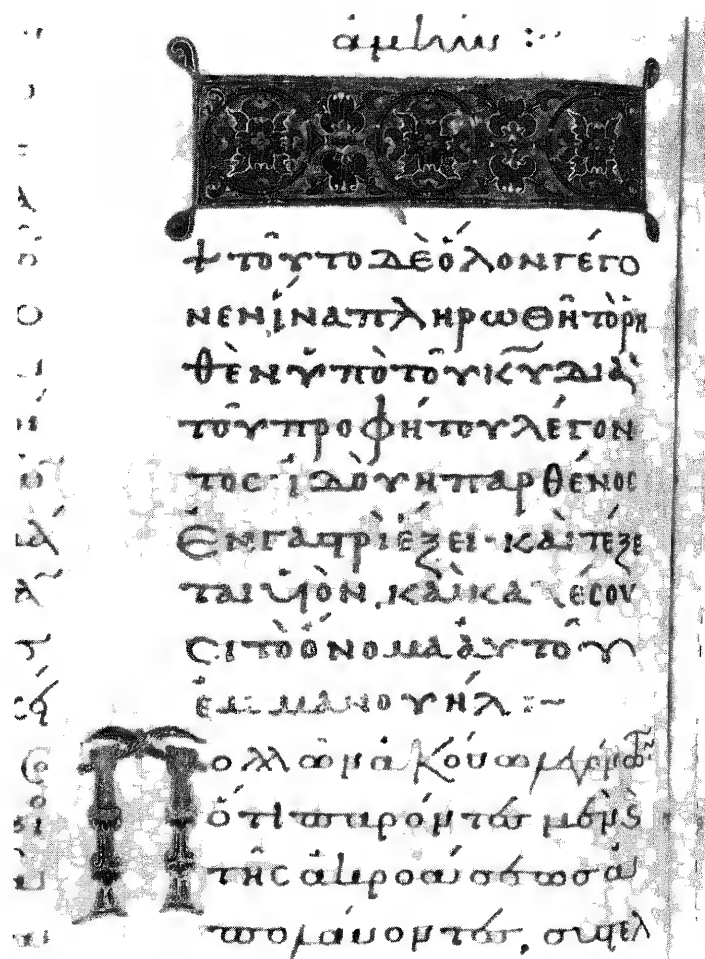 ἀμήν :··
+ τοῦτο δὲ ὅλον γέγο
νεν ἵνα πληρωθῆ τὸ ῥη
θὲν ὑπὸ τοῦ κ̅υ̅ διὰ
τοῦ προφήτου λέγον
τος· ἰδοὺ ἡ παρθένος
ἐν γαστρὶ ἕξει· καὶ τέξε
ται υἱὸν, καὶ καλέσου
σι τὸ ὄνομα αὐτοῦ
ἐμμανουήλ :~
Πολλῶν ἀκούω λεγόντων
ὅτι παρόντες μὲν ϛ
τῆς ἀκροάσεως ἀ
πολαύοντες, συστελ